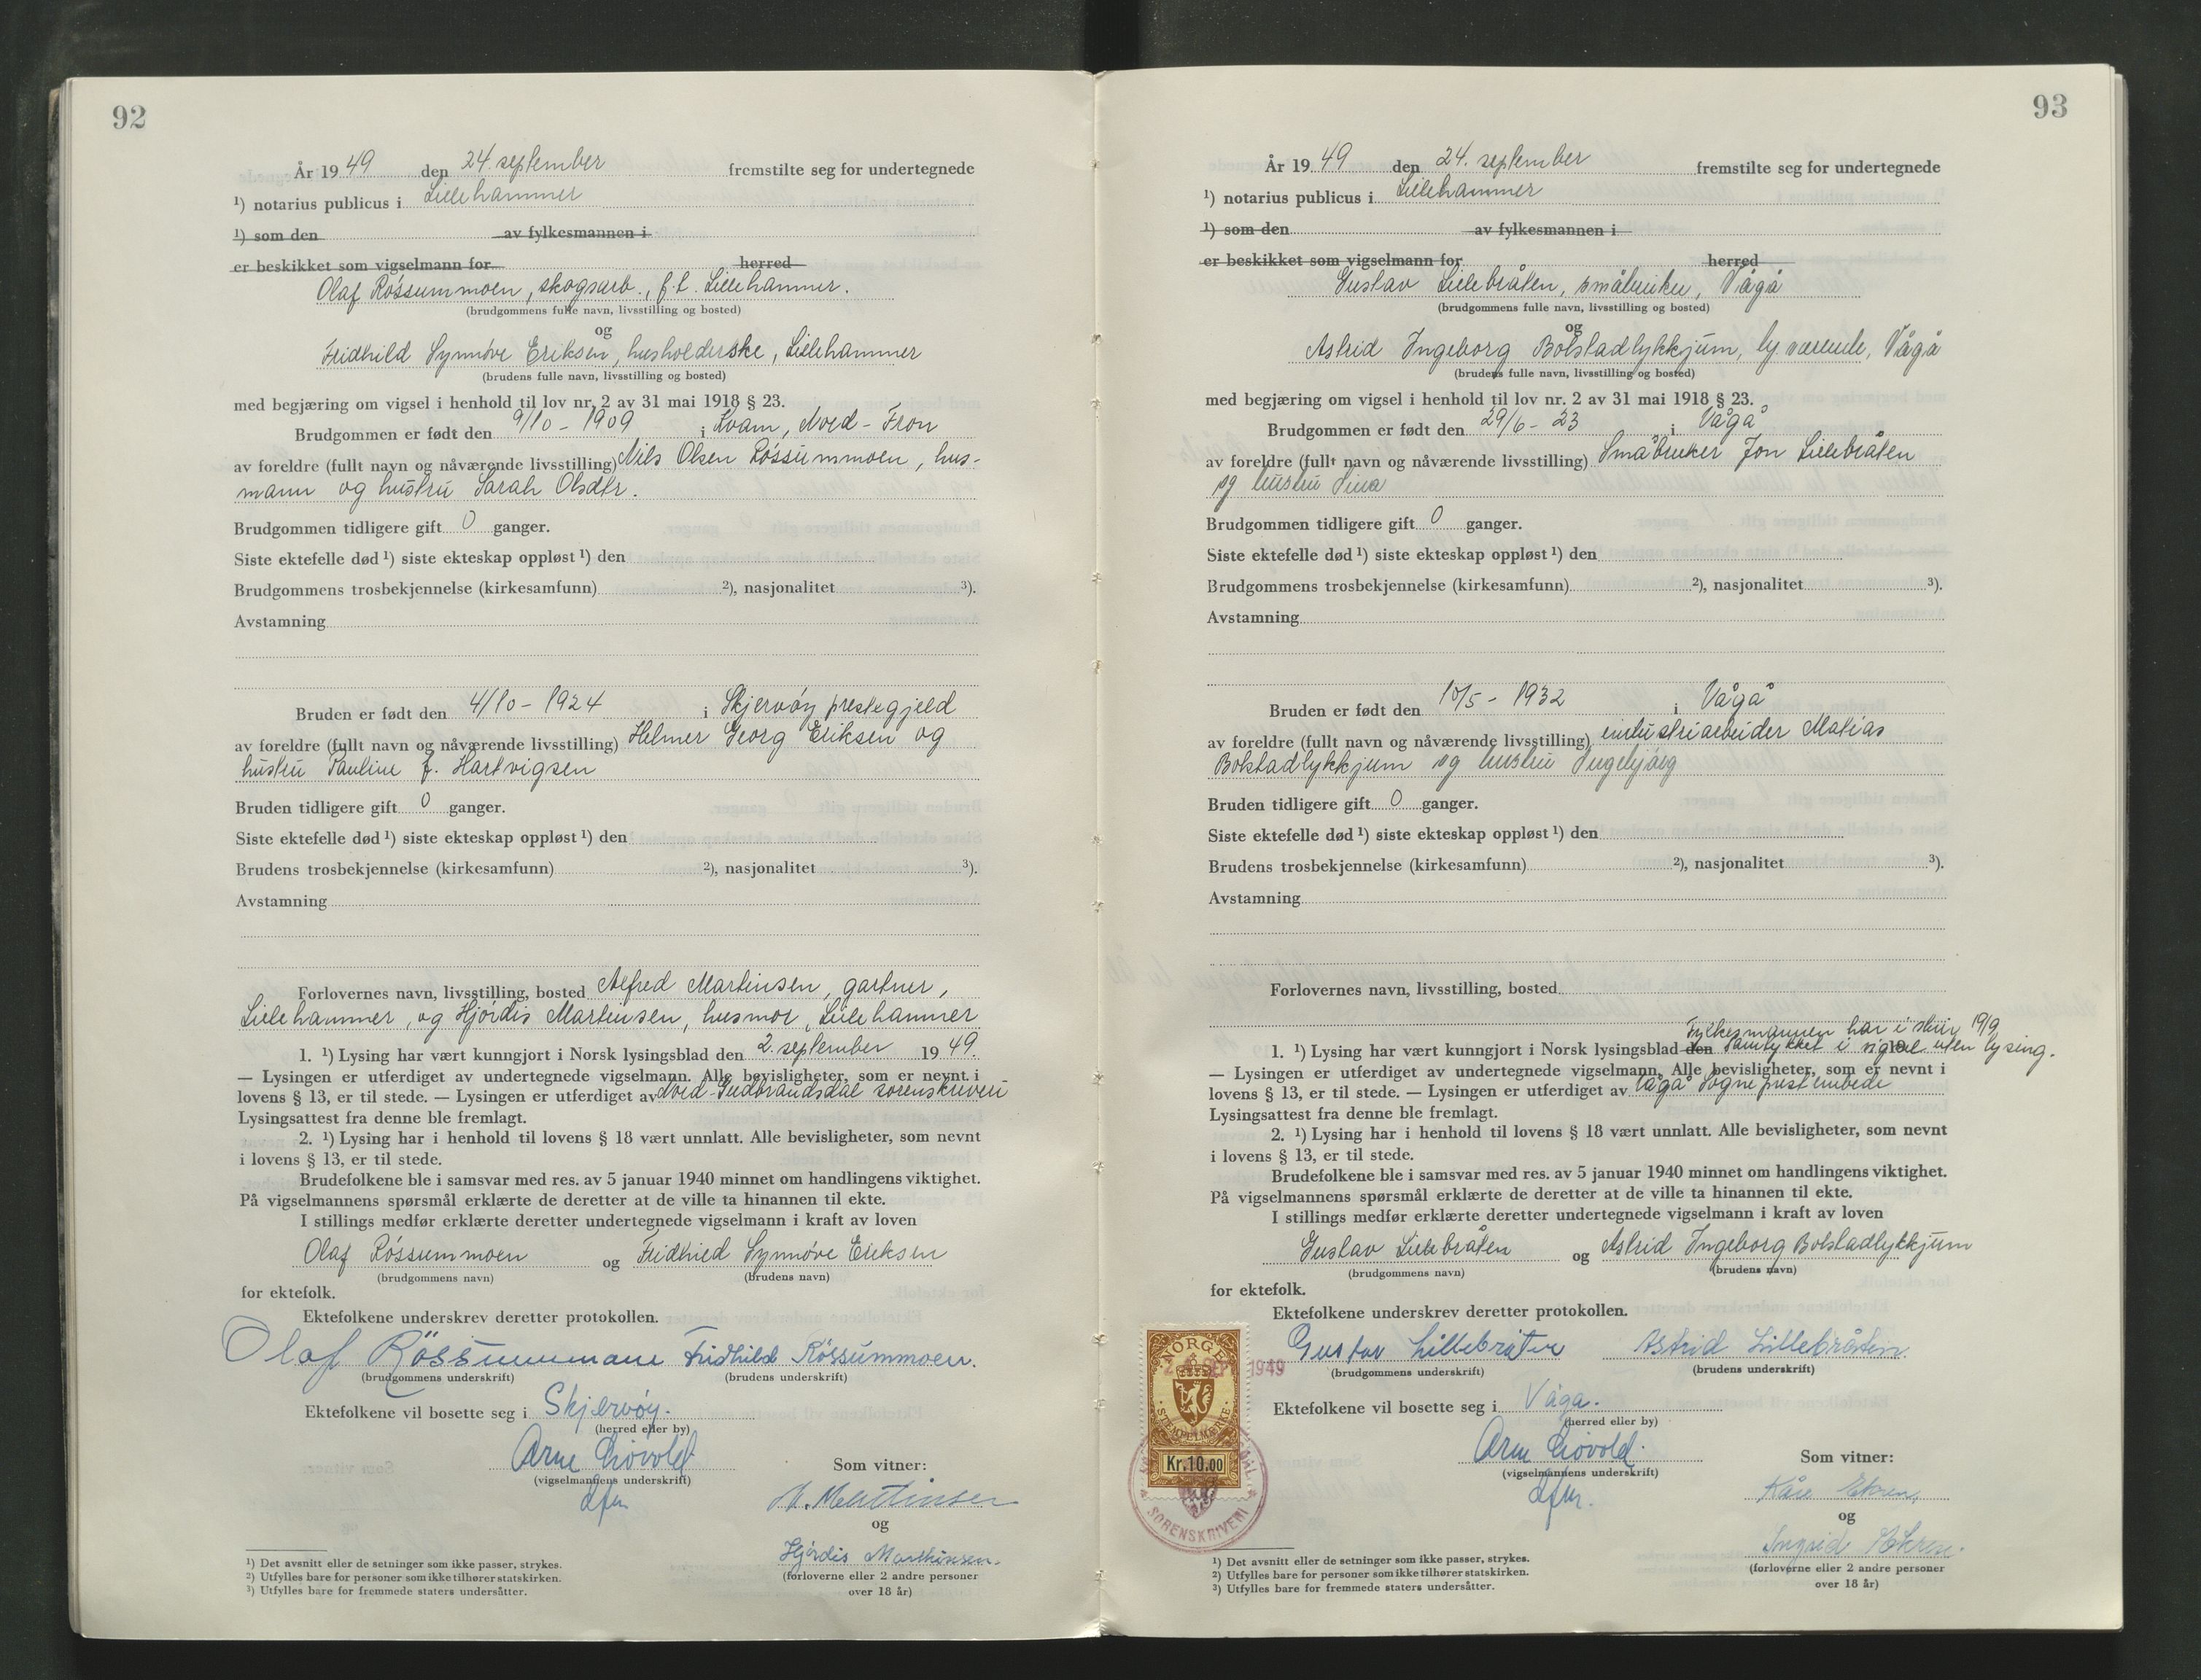 92
År 1949 den 24. september fremstilte seg for undertegnede
¹) notarius publicus i Lillehammer
¹) som den av fylkesmannen i
er beskikket som vigselmann for herred
Olaf Røssummoen, skogsarb., f.t. Lillehammer.
(brudgommens fulle navn, livsstilling og bosted)
og
Fridhild Synnøve Eriksen, husholderske, Lillehammer
(brudens fulle navn, livsstilling og bosted)
med begjæring om vigsel i henhold til lov nr. 2 av 31 mai 1918 § 23.
Brudgommen er født den 9/10 - 1909 i Kvam, Nord-Fron
av foreldre (fullt navn og nåværende livsstilling) Nils Olsen Røssummoen, hus-
mann og hustru Sarah Olsdtr.
Brudgommen tidligere gift 0 ganger.
Siste ektefelle død ¹) siste ekteskap oppløst ¹) den
Brudgommens trosbekjennelse (kirkesamfunn) ²), nasjonalitet ³).
Avstamning
Bruden er født den 4/10 - 1924 i Skjervøy prestegjeld
av foreldre (fullt navn og nåværende livsstilling) Helmer Georg Eriksen og
hustru Pauline f. Hartvigsen
Bruden tidligere gift 0 ganger.
Siste ektefelle død ¹) siste ekteskap oppløst ¹) den
Brudens trosbekjennelse (kirkesamfunn) ²), nasjonalitet ³).
Avstamning
Forlovernes navn, livsstilling, bosted Alfred Martinsen, gartner,
Lillehammer, og Hjørdis Martinsen, husmor, Lillehammer
1. ¹) Lysing har vært kunngjort i Norsk lysingsblad den 2. september 1949.
— Lysingen er utferdiget av undertegnede vigselmann. Alle bevisligheter, som er nevnt i
lovens § 13, er til stede. — Lysingen er utferdiget av Nord-Gudbrandsdal sorenskriveri
Lysingsattest fra denne ble fremlagt.
2. ¹) Lysing har i henhold til lovens § 18 vært unnlatt. Alle bevisligheter, som nevnt
i lovens § 13, er til stede.
Brudefolkene ble i samsvar med res. av 5 januar 1940 minnet om handlingens viktighet.
På vigselmannens spørsmål erklærte de deretter at de ville ta hinannen til ekte.
I stillings medfør erklærte deretter undertegnede vigselmann i kraft av loven
Olaf Røssummoen og Fridhild Synnøve Eriksen
(brudgommens navn) (brudens navn)
for ektefolk.
Ektefolkene underskrev deretter protokollen.
Olaf Fridhild Røssummoen.
(brudgommens underskrift) (brudens underskrift)
Ektefolkene vil bosette seg i Skjervøy.
(herred eller by)
Arne Løvold
(vigselmannens underskrift)
Som vitner:
og
Hjørdis Martinsen.
(forloverne eller 2 andre personer
over 18 år)
¹) Det avsnitt eller de setninger som ikke passer, strykes.
²) Utfylles bare for personer som ikke tilhører statskirken.
³) Utfylles bare for fremmede staters undersåtter.
93
År 1949 den 24. september fremstilte seg for undertegnede
¹) notarius publicus i Lillehammer
¹) som den av fylkesmannen i
er beskikket som vigselmann for herred
Gustav Lillebråten, småbruker, Vågå
(brudgommens fulle navn, livsstilling og bosted)
og
Astrid Ingeborg Bolstadlykkjum, hj. værende, Vågå
(brudens fulle navn, livsstilling og bosted)
med begjæring om vigsel i henhold til lov nr. 2 av 31 mai 1918 § 23.
Brudgommen er født den 29/6 - 23 i Vågå
av foreldre (fullt navn og nåværende livsstilling) Småbruker Jon Lillebråten
og hustru
Brudgommen tidligere gift 0 ganger.
Siste ektefelle død ¹) siste ekteskap oppløst ¹) den
Brudgommens trosbekjennelse (kirkesamfunn) ²), nasjonalitet ³).
Avstamning
Bruden er født den 10/5 - 1932 i Vågå
av foreldre (fullt navn og nåværende livsstilling) industriarbeider Matias
Bolstadlykkjum og hustru Ingebjørg
Bruden tidligere gift 0 ganger.
Siste ektefelle død ¹) siste ekteskap oppløst ¹) den
Brudens trosbekjennelse (kirkesamfunn) ²), nasjonalitet ³).
Avstamning
Forlovernes navn, livsstilling, bosted
Fylkesmannen har i skriv 19/9
1. ¹) Lysing har vært kunngjort i Norsk lysingsblad den samtykket i vigsel uten lysing.
— Lysingen er utferdiget av undertegnede vigselmann. Alle bevisligheter, som er nevnt i
lovens § 13, er til stede. — Lysingen er utferdiget av Vågå Sogneprestembede
Lysingsattest fra denne ble fremlagt.
2. ¹) Lysing har i henhold til lovens § 18 vært unnlatt. Alle bevisligheter, som nevnt
i lovens § 13, er til stede.
Brudefolkene ble i samsvar med res. av 5 januar 1940 minnet om handlingens viktighet.
På vigselmannens spørsmål erklærte de deretter at de ville ta hinannen til ekte.
I stillings medfør erklærte deretter undertegnede vigselmann i kraft av loven
Gustav Lillebråten og Astrid Ingeborg Bolstadlykkjum
(brudgommens navn) (brudens navn)
for ektefolk.
Ektefolkene underskrev deretter protokollen.
Gustav Lillebråten Astrid Lillebråten.
(brudgommens underskrift) (brudens underskrift)
Ektefolkene vil bosette seg i Våga.
(herred eller by)
Arne Løvold.
(vigselmannens underskrift)
Som vitner:
Kåre Ekren.
og
Ingrid Ekren.
(forloverne eller 2 andre personer
over 18 år)
NORGE
1949
STEMPELMERKE
Kr.10.00
SORENSKRIVERI
¹) Det avsnitt eller de setninger som ikke passer, strykes.
²) Utfylles bare for personer som ikke tilhører statskirken.
³) Utfylles bare for fremmede staters undersåtter.